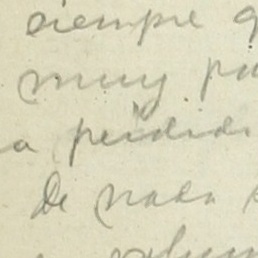 siempre q
muy pa
a perdida
De nada